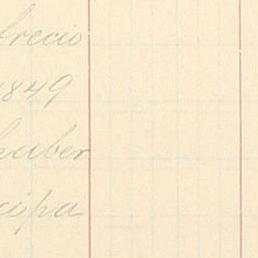 precio
1849
haber
cipa